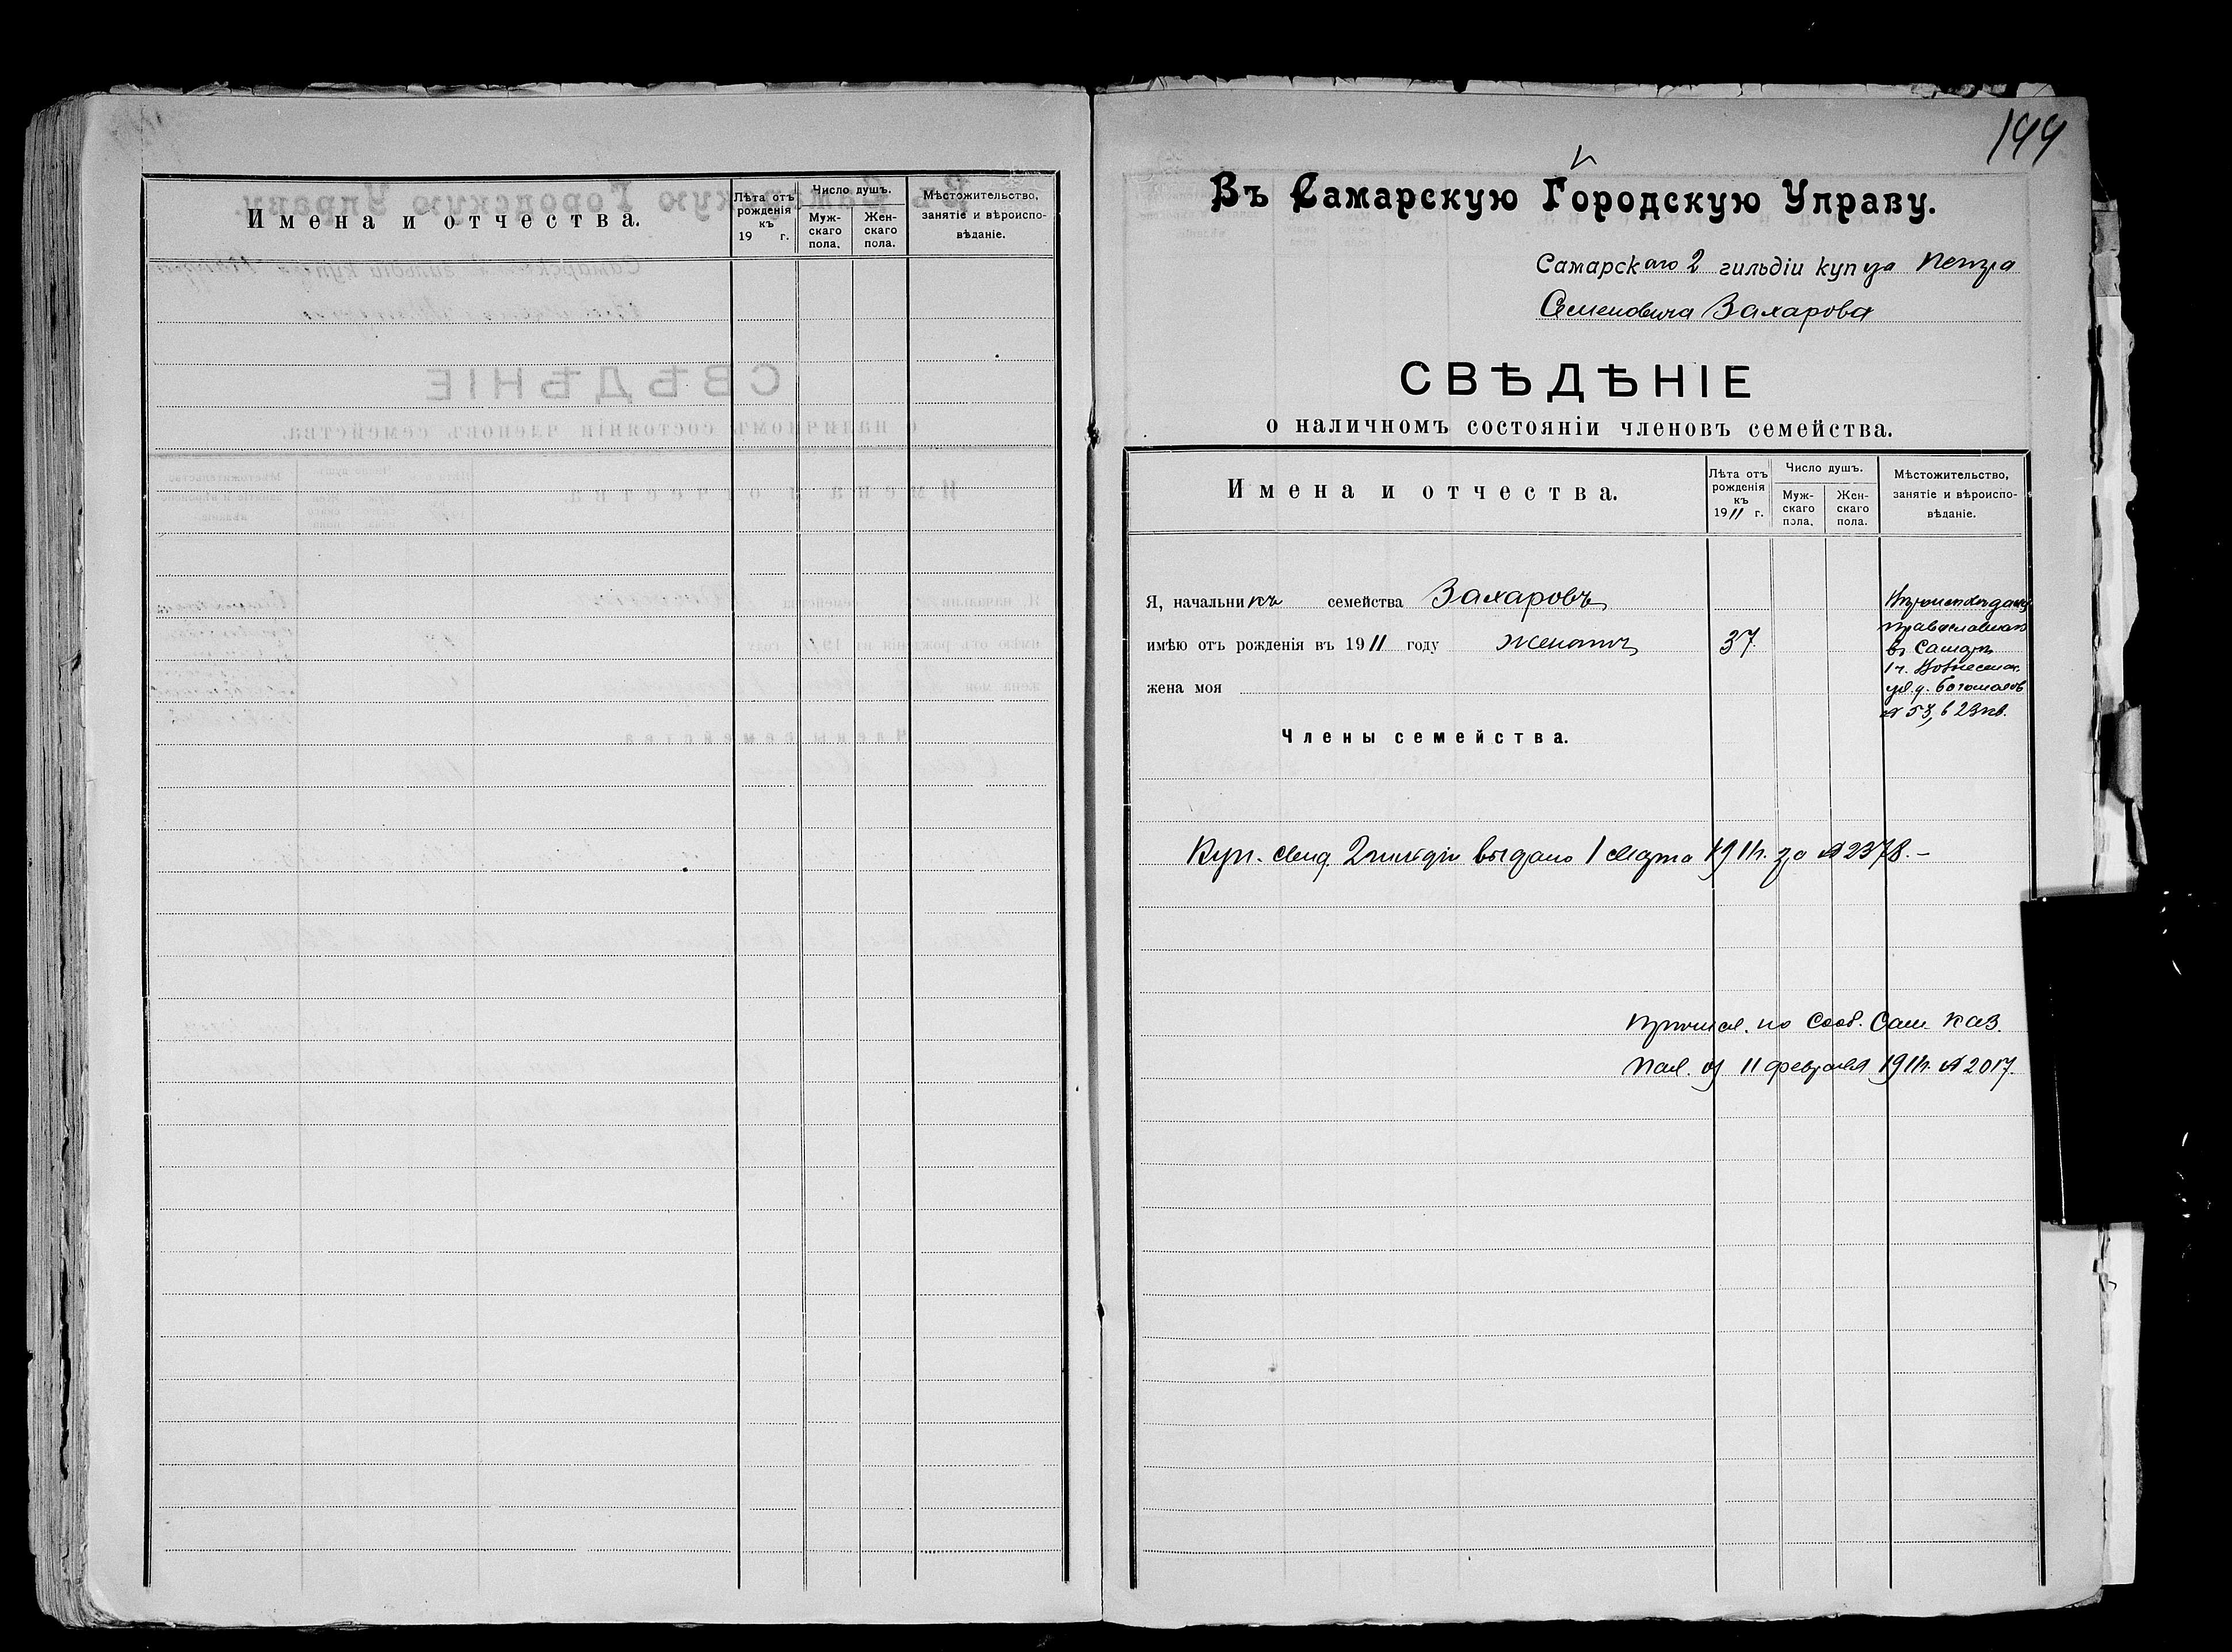 Имена и отчества.
Лѣта отъ рожденія къ 19 г.
Число душъ.
Муж-скаго пола.
Жен-скаго пола.
Мѣстожительство, занятіе и вѣроиспо-вѣданіе.
144
Въ Самарскую Городскую Управу.
Самарскаго 2 гильдіи купца Петра
Семеновича Захарова
СВѢДѢНІЕ
о наличномъ состояніи членовъ семейства.
Имена и отчества.
Лѣта отъ рожденія къ 1911 г.
Число душъ.
Муж-скаго пола.
Жен-скаго пола.
Мѣстожительство, занятіе и вѣроиспо-вѣданіе.
Я, начальникъ семейства Захаровъ
имѣю отъ рожденія въ 1911 году женатъ 37
жена моя
православнаго
въ Самарѣ
1 ч. Вознесенск.
ул. д. Богомолов
№ 53, в 23 кв.
Члены семейства.
Куп. свид. 2 гильдіи выдано 1 марта 1911г. за № 2378.-
Причисл. по сооб. Сам. Каз.
Пал. от 11 февраля 1911г. № 2017.